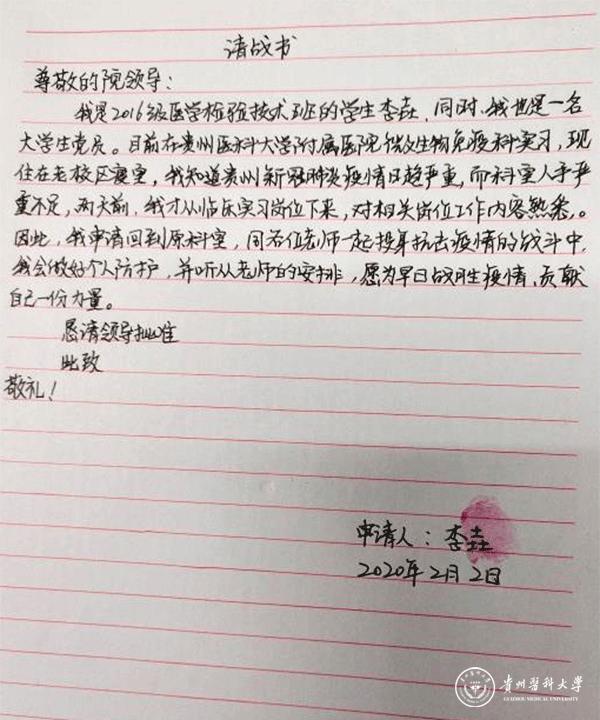 请战书
尊敬的院领导：
我是2016级医学检验技术班的学生李垚，同时，我也是一名
大学生党员。目前在贵州医科大学附属医院微生物免疫科实习，现
住在老校区寝室，我知道贵州新冠肺炎疫情日趋严重，而科室人手严
重不足，两天前，我才从临床实习岗位下来，对相关岗位工作内容熟悉，。
因此，我申请回到原科室，同各位老师一起投身抗击疫情的战斗中，
我会做好个人防护，并听从老师的安排，愿为早日战胜疫情，贡献
自己一份力量。
恳请领导批准
此致
敬礼！
申请人：李垚
2020年2月2日
贵州医科大学
GUIZHOU MEDICAL UNIVERSITY